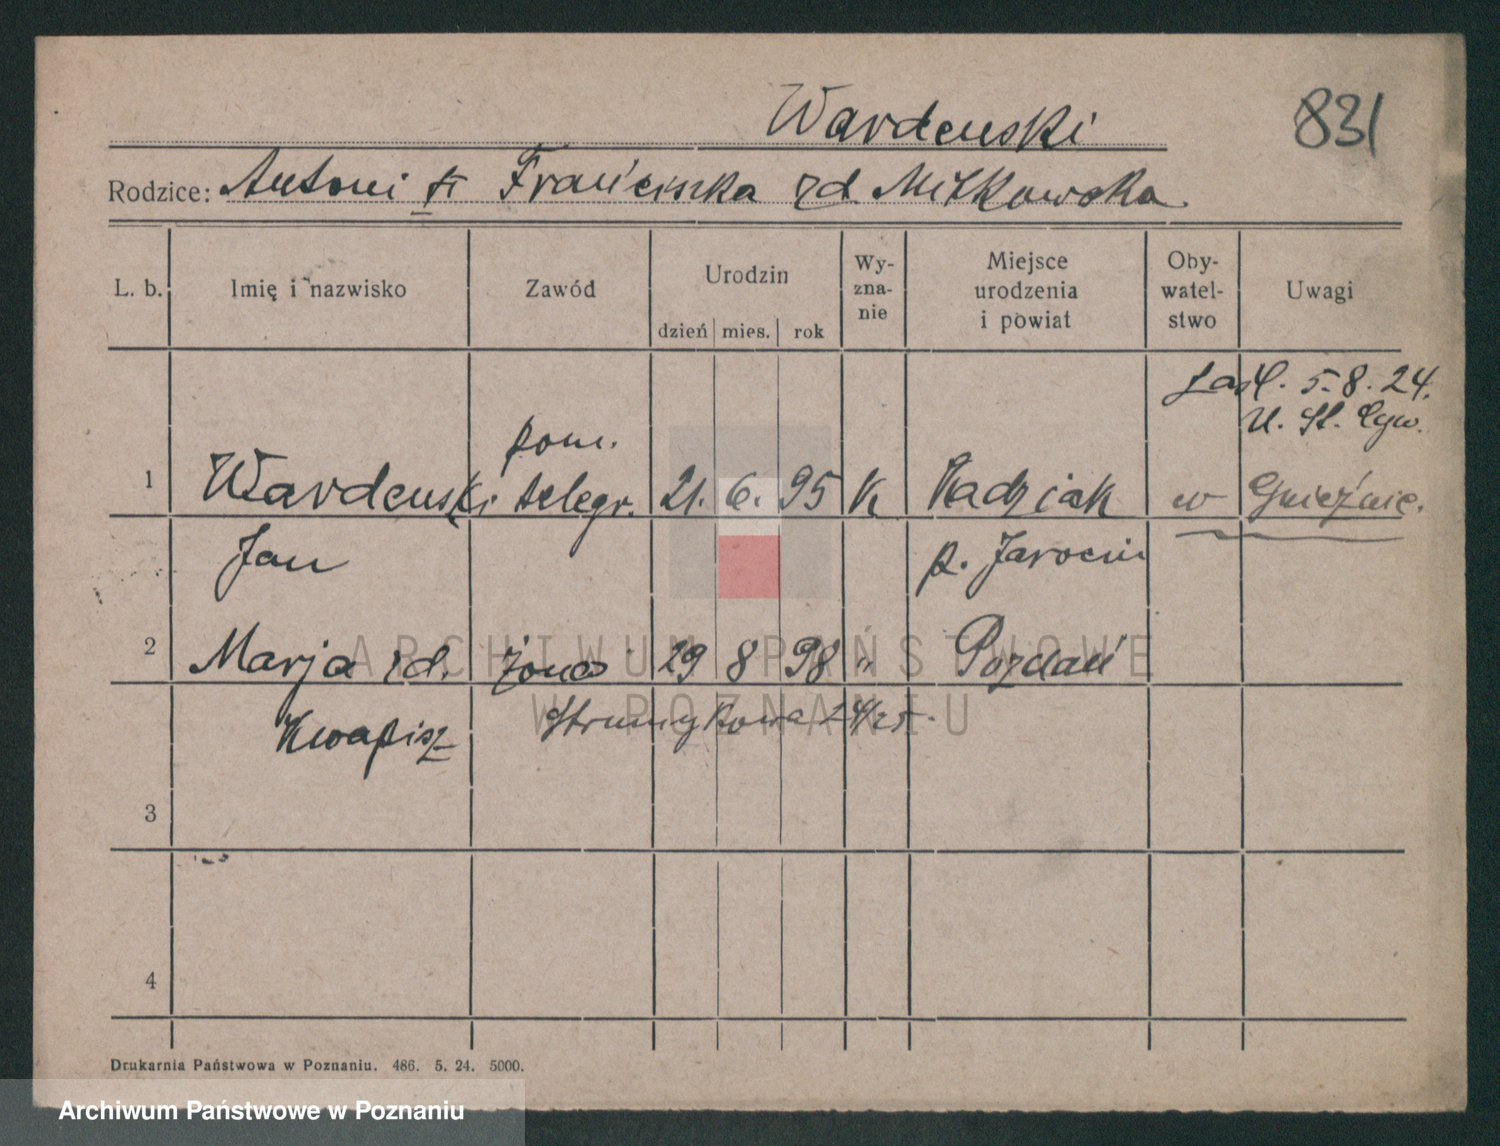 Wardenski 831
Rodzice: Antoni Franciszka rd. Mitkowska
L. b. Imię i nazwisko Zawód Urodzin dzień mies. rok Wy-zna-nie Miejsce urodzenia i powiat Oby-watel-stwo Uwagi
5. 8. 24.
U. St. Cyw.
pom.
1 Wardenski telegr. 21. 6. 95 K Radziak w Gnieźnie.
Jan p. Jarocin
2 Marja rd. żona 29 8 98 " Poznań
Kwapisz Strumykowa 24/25.
3
4
ARCHIWUM PAŃSTWOWE
W POZNANIU
Drukarnia Państwowa w Poznaniu. 486. 5. 24. 5000.
Archiwum Państwowe w Poznaniu